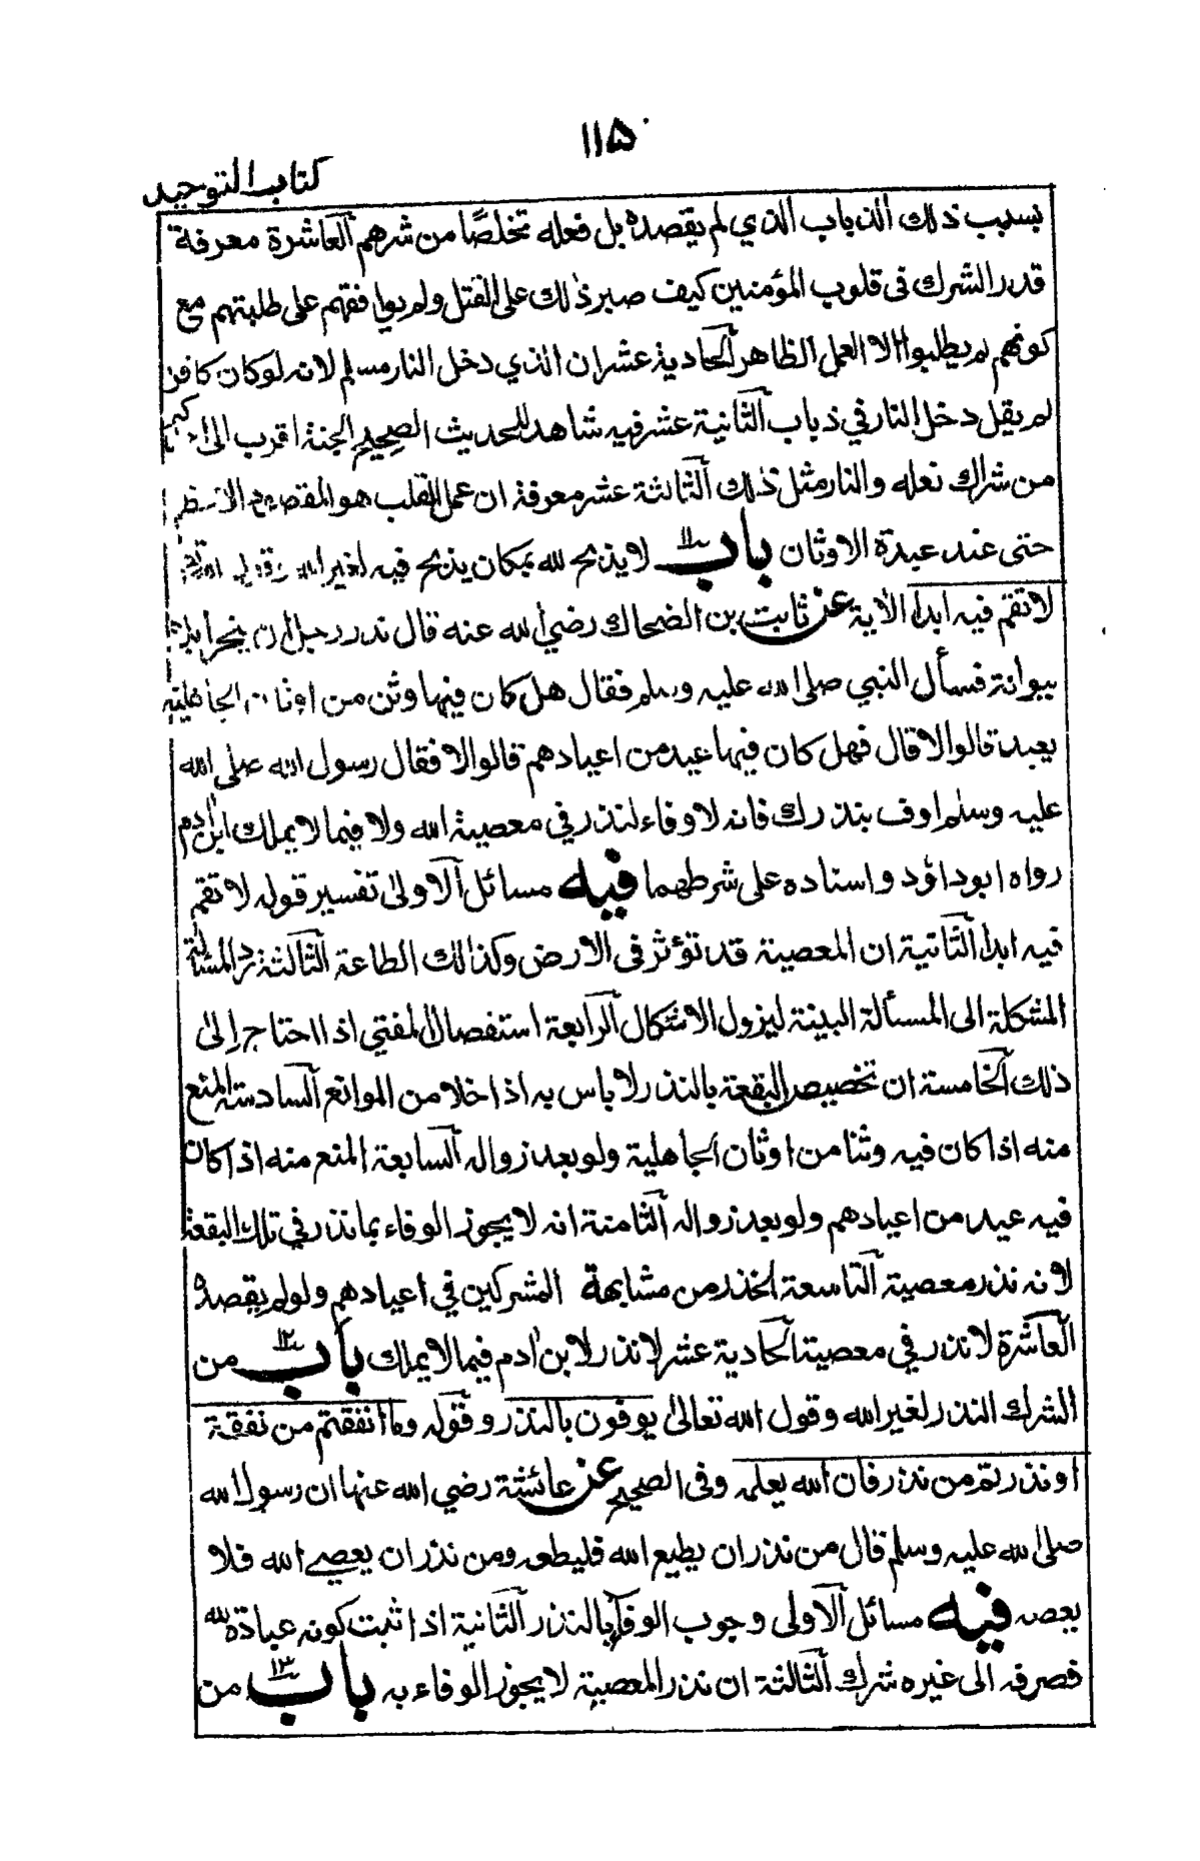 ١١٥
كتاب التوحيد
بسبب ذلك الذباب الذي لم يقصده بل فعله تخلصًا من شرهم العاشرة معرفة
قدر الشرك فى قلوب المؤمنين كيف صبر ذلك على القتل ولم يوافقهم على طلبتهم مع
كونهم لم يطلبوا الا العمل الظاهر الحادية عشر ان الذي دخل النار مسلم لانه لو كان كافرا
لم يقل دخل النار في ذباب الثانية عشر فيه شاهد للحديث الصحيح الجنة اقرب الى احدكم
من شراك نعله والنار مثل ذلك الثالثة عشر معرفة ان عمل القلب هو المقصود الاعظم
حتى عند عبدة الاوثان باب ١١ لا يذبح لله بمكان يذبح فيه لغير الله وقوله تعالى
لا تقم فيه ابدا الآية عن ثابت بن الضحاك رضي الله عنه قال نذر رجل ان ينحر ابلا
ببوانة فسأل النبي صلى الله عليه وسلم فقال هل كان فيها وثن من اوثان الجاهلية
يعبد قالوا لا قال فهل كان فيها عيد من اعيادهم قالوا لا فقال رسول الله صلى الله
عليه وسلم اوف بنذرك فانه لا وفاء لنذر في معصية الله ولا فيما لا يملك ابن اٰدم
رواه ابو داؤد واسناده على شرطهما فيه مسائل الاولىٰ تفسير قوله لا تقم
فيه ابدا الثانية ان المعصية قد تؤثر فى الارض وكذالك الطاعة الثالثة رد المسئلة
المشكلة الى المسألة البينة ليزول الاشكال الرابعة استفصال المفتي اذا احتاج الىٰ
ذلك الخامسة ان تخصيص البقعة بالنذر لا باس به اذا خلا من الموانع السادسة المنع
منه اذا كان فيه وثنا من اوثان الجاهلية ولو بعد زواله السابعة المنع منه اذا كان
فيه عيد من اعيادهم ولو بعد زواله الثامنة انه لا يجوز الوفاء بما نذر في تلك البقعة
لانه نذر معصية التاسعة الحذر من مشابهة المشركين في اعيادهم ولو لم يقصده
العاشرة لا نذر في معصية الحادية عشر لا نذر لابن اٰدم فيما لا يملك باب ١٢ من
الشرك النذر لغير الله وقول الله تعالىٰ يوفون بالنذر وقوله وما انفقتم من نفقة
او نذرتم من نذر فان الله يعلمه وفى الصحيح عن عائشة رضي الله عنها ان رسول الله
صلى الله عليه وسلم قال من نذر ان يطيع الله فليطعه ومن نذر ان يعصي الله فلا
يعصه فيه مسائل الاولى وجوب الوفآء بالنذر الثانية اذا ثبت كونه عبادة لله
فصرفه الى غيره شرك الثالثة ان نذر المعصية لا يجوز الوفاء به باب ١٣ من